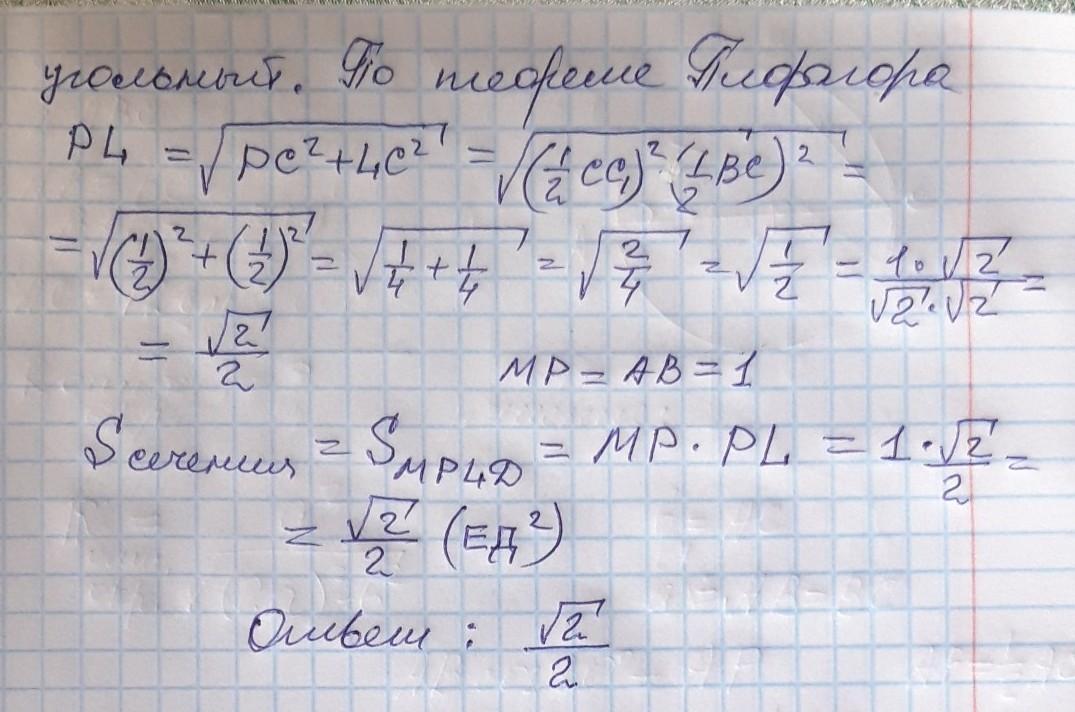 угольный. По теореме Пифагора
PL = √(PC² + LC²) = √((1/2 CC₁)² (1/2 BC)²) =
= √((1/2)² + (1/2)²) = √(1/4 + 1/4) = √(2/4) = √(1/2) = (1·√2)/(√2·√2) =
= √2/2 MP = AB = 1
Sсечения = S_MPLD = MP · PL = 1 · √2/2 =
= √2/2 (ЕД²)
Ответ : √2/2